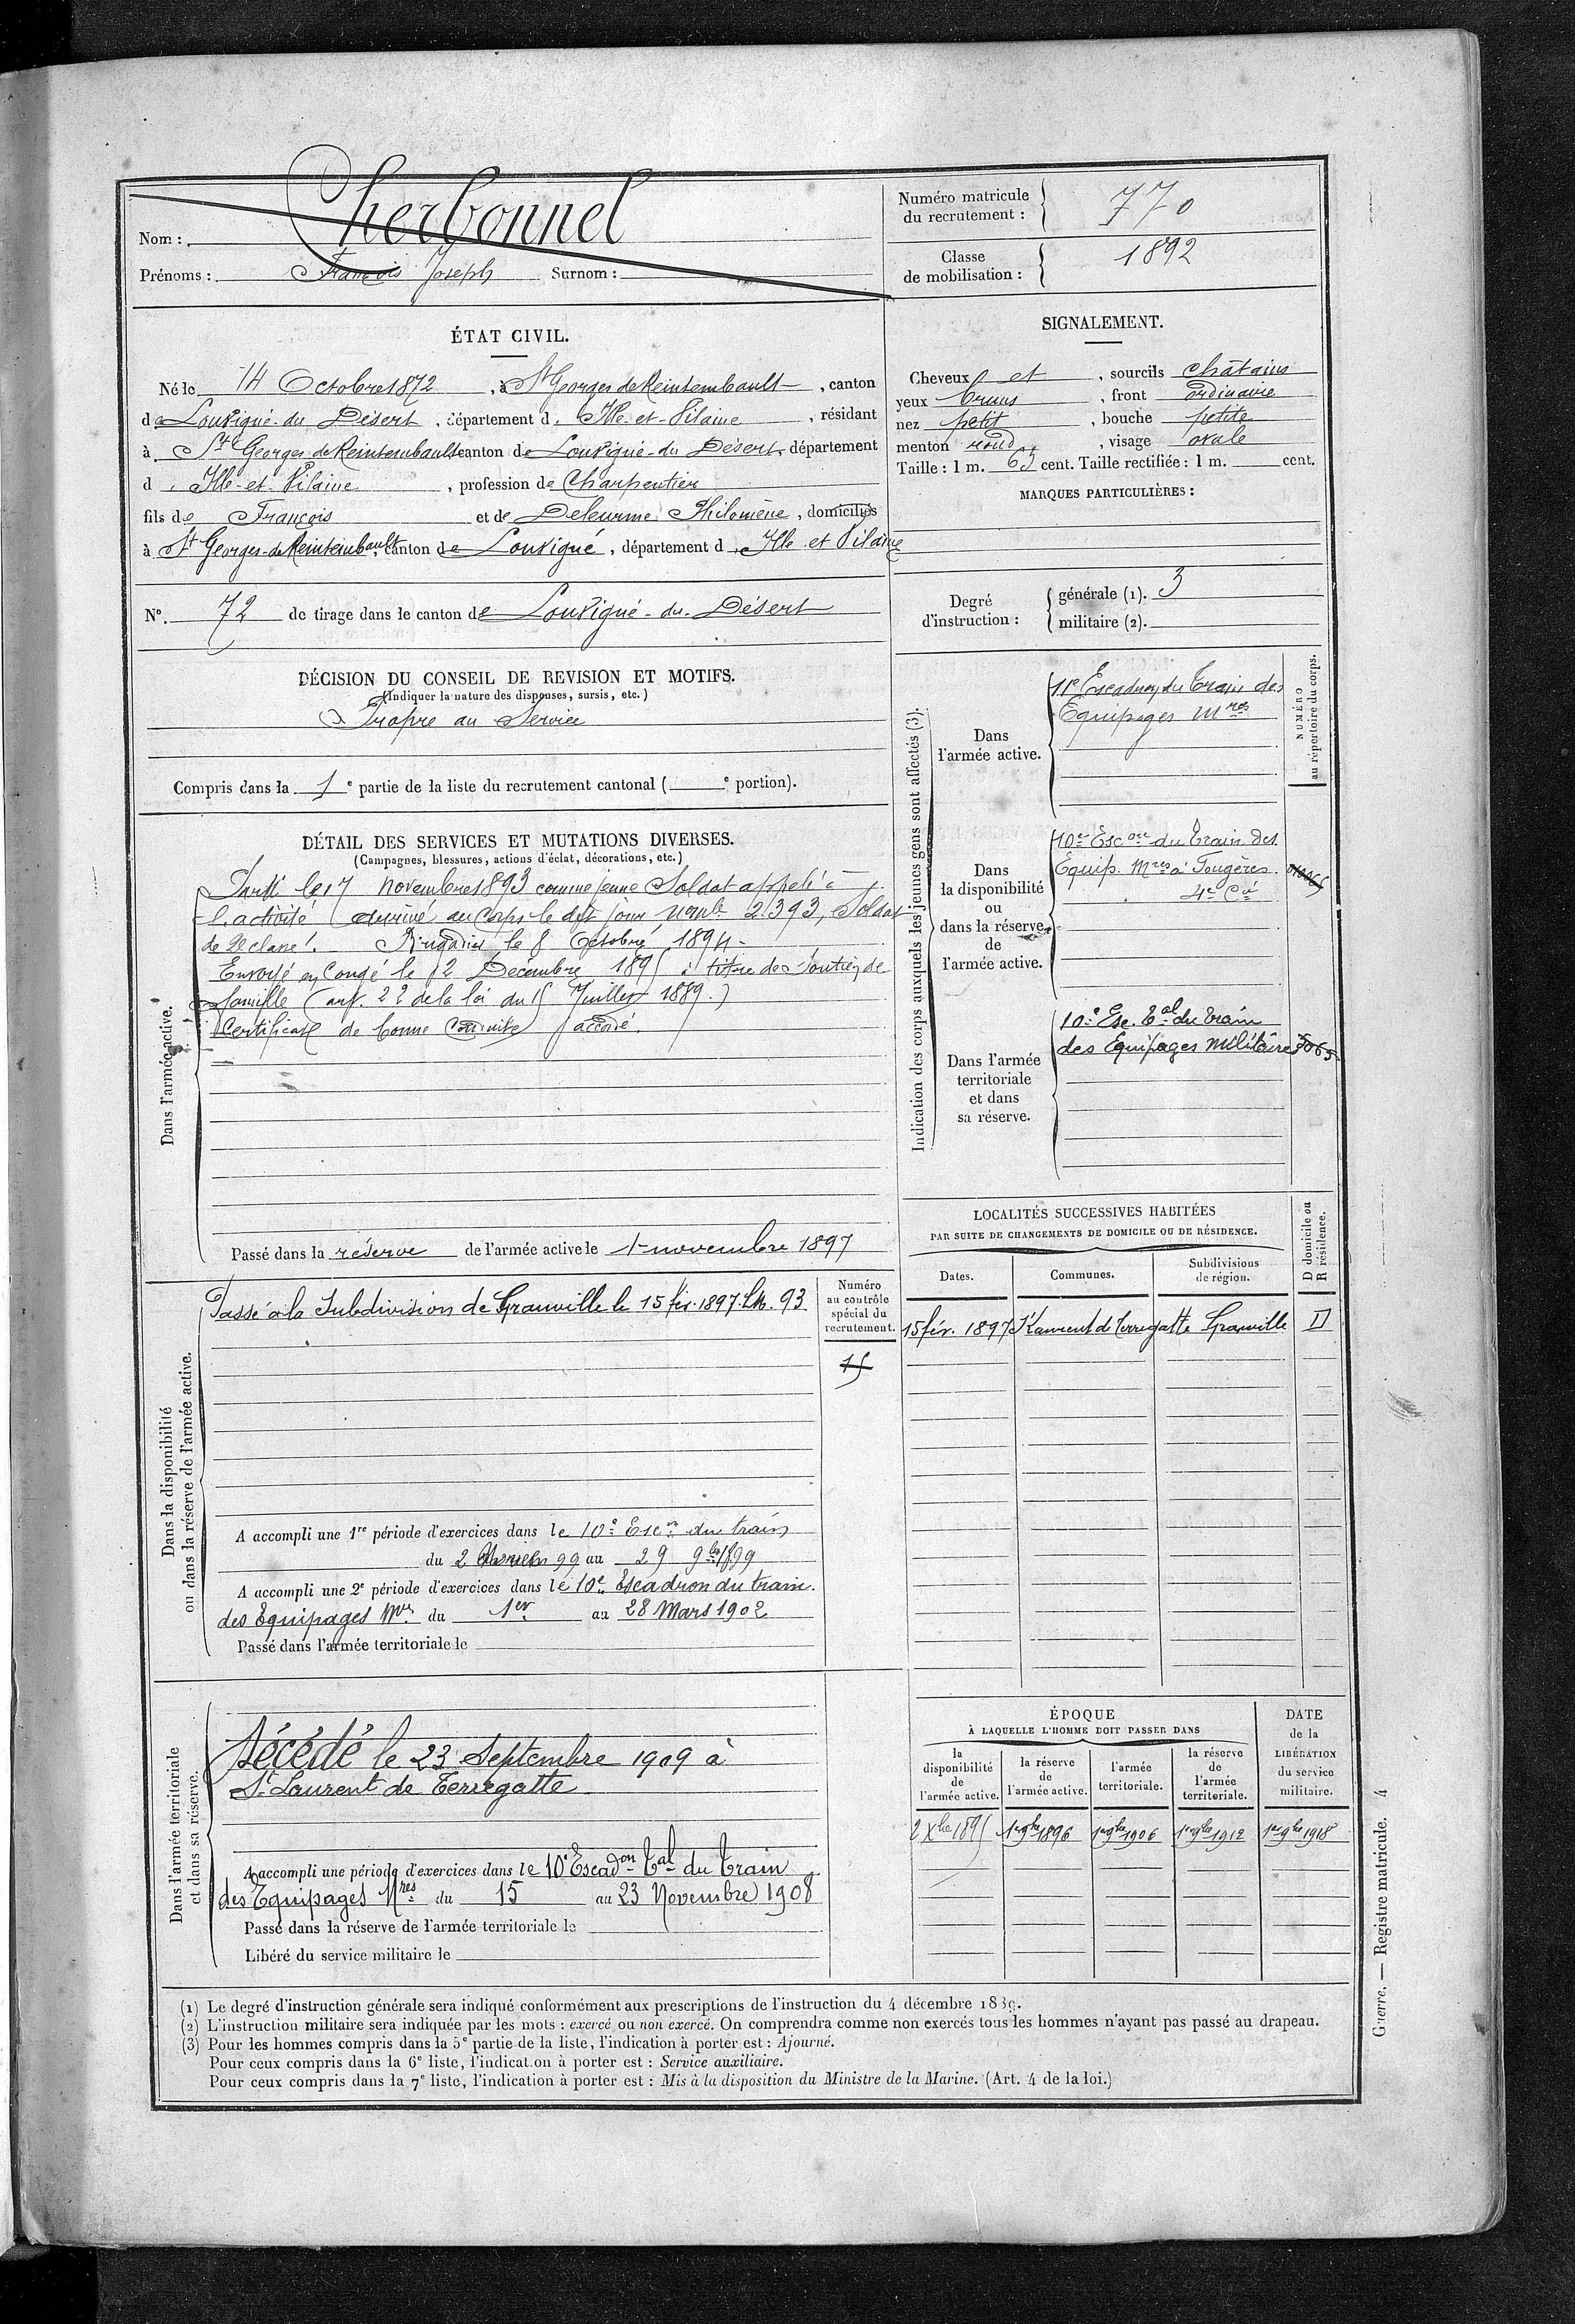 Nom : Cherbonnel
Prénoms : François Joseph Surnom :
Numéro matricule du recrutement : 770
Classe de mobilisation : 1892
ÉTAT CIVIL.
Né le 14 Octobre 1872, à St Georges de Reintembault, canton
de Louvigné-du-Désert, département d. Ille-et-Vilaine, résidant
à St Georges de Reintembault canton de Louvigné-du-Désert, département
d. Ille-et-Vilaine, profession de Charpentier
fils de François et de Deleurme Philomène, domiciliés
à St Georges-de-Reintembault, canton de Louvigné, département d. Ille et Vilaine
N°. 72 de tirage dans le canton de Louvigné-du-Désert
SIGNALEMENT.
Cheveux et, sourcils châtains
yeux bruns, front ordinaire
nez petit, bouche petite
menton rond, visage ovale
Taille : 1 m. 63 cent. Taille rectifiée : 1 m. cent.
MARQUES PARTICULIÈRES :
Degré d'instruction : générale (1). 3
militaire (2).
DÉCISION DU CONSEIL DE REVISION ET MOTIFS.
(Indiquer la nature des dispenses, sursis, etc.)
Propre au Service
Compris dans la 1e partie de la liste du recrutement cantonal ( e portion).
DÉTAIL DES SERVICES ET MUTATIONS DIVERSES.
(Campagnes, blessures, actions d'éclat, décorations, etc.)
Dans l'armée active.
Parti le 17 novembre 1893 comme jeune Soldat appelé à
l'activité arrivé au Corps le dit jour, 2393, Soldat
de 2e classe. Brigadier le 8 Octobre 1894.
Envoyé en Congé le 2 Décembre 1895 à titre de Soutien de
famille (art. 22 de la loi du 15 Juillet 1889.)
Certificat de bonne Conduite accordé.
Passé dans la réserve de l'armée active le 1er novembre 1897
Indication des corps auxquels les jeunes gens sont affectés (3).
NUMÉRO au répertoire du corps.
Dans l'armée active.
11e Escadron du Train des
Equipages Mres
Dans la disponibilité ou dans la réserve de l'armée active.
10e Escon du Train des
Equip. Mres à Fougères
4e Cie
Dans l'armée territoriale et dans sa réserve.
10e Esc. Tal du Train
des Equipages Militaires
Dans la disponibilité ou dans la réserve de l'armée active.
Passé à la Subdivision de Granville le 15 fév. 1897. 93
Numéro au contrôle spécial du recrutement.
15
A accompli une 1re période d'exercices dans le 10e Escon du train
du 2 99 au 29 9bre 1899
A accompli une 2e période d'exercices dans le 10e Escadron du train
des Equipages Mres du 1er au 28 Mars 1902
Passé dans l'armée territoriale le
LOCALITÉS SUCCESSIVES HABITÉES
PAR SUITE DE CHANGEMENTS DE DOMICILE OU DE RÉSIDENCE.
Dates. Communes. Subdivisions de région. D domicile ou R résidence.
15 fév. 1897 St Laurent de Terregatte Granville D
Dans l'armée territoriale et dans sa réserve.
Décédé le 23 Septembre 1909 à
St Laurent de Terregatte
A accompli une période d'exercices dans le 10e Escadon Tal du Train
des Equipages Mres du 15 au 23 Novembre 1908
Passé dans la réserve de l'armée territoriale le
Libéré du service militaire le
ÉPOQUE
À LAQUELLE L'HOMME DOIT PASSER DANS
la disponibilité de l'armée active. la réserve de l'armée active. l'armée territoriale. la réserve de l'armée territoriale.
DATE de la LIBÉRATION du service militaire.
2 Xbre 1895 1er 9bre 1896 1er 9bre 1906 1er 9bre 1912 1er 9bre 1918
(1) Le degré d'instruction générale sera indiqué conformément aux prescriptions de l'instruction du 4 décembre 1889.
(2) L'instruction militaire sera indiquée par les mots : exercé ou non exercé. On comprendra comme non exercés tous les hommes n'ayant pas passé au drapeau.
(3) Pour les hommes compris dans la 5e partie de la liste, l'indication à porter est : Ajourné.
Pour ceux compris dans la 6e liste, l'indication à porter est : Service auxiliaire.
Pour ceux compris dans la 7e liste, l'indication à porter est : Mis à la disposition du Ministre de la Marine. (Art. 4 de la loi.)
Guerre. — Registre matricule. 4